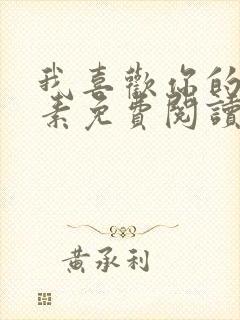 我喜歡你的
素免費閱讀
黃承利